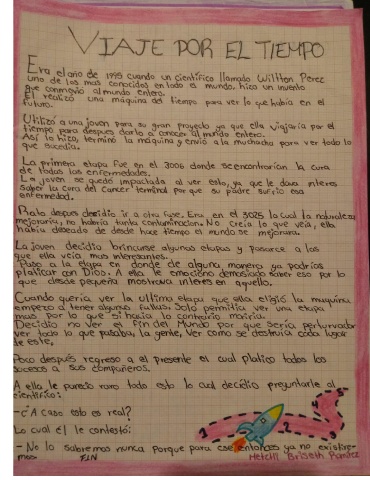 VIAJE POR EL TIEMPO
Era el año de 1999 cuando un científico llamado Willton Perez
uno de los mas conocidos en todo el mundo, hizo un invento
que conmovio al mundo entero.
El realizó una maquina del tiempo para ver lo que habia en el
futuro.
Utilizó a una joven para su gran proyecto ya que ella viajaria por el
tiempo para despues darlo a conocer al mundo entero.
Asi lo hizo, terminó la maquina y envió a la muchacha para ver todo lo
que sucedia.
La primera etapa fue en el 3006 donde se encontrarian la cura
de todas las enfermedades.
La joven se quedó impactada al ver esto, ya que le daba interes
saber la cura del cancer terminal por que su padre sufria esa
enfermedad.
Rato despues decidio ir a otra fase. Era en el 3025 la cual la naturaleza
mejoraria, no habria tanta contaminacion. No creia lo que veia, ella
habia deseado de desde hace tiempo el mundo se mejorara.
La joven decidio brincarse algunas etapas y pasarce a las
que ella veia mas interesantes.
Paso a la etapa en donde de alguna manera ya podrias
platicar con Dios. A ella le emociono demasiado saber eso por lo
que desde pequeña mostrava interes en aquello.
Cuando queria ver la ultima etapa que ella eligió la maquina
empezo a tener algunas fallas. Solo permitia ver una etapa
mas por lo que si hacia lo contrario moriria.
Decidio no ver el fin del Mundo por que seria perturvador
ver todo lo que pasaba, la gente, ver como se destruia cada lugar
de este,
Poco después regreso a el presente el cual platico todos los
sucesos a sus compañeros.
A ella le parecio raro todo esto lo cual decidio preguntarle al
cientifico:
-¿A caso esto es real?
Lo cual él le contestó:
- No lo sabremos nunca porque para ese entonces ya no existire-
mos FIN
1 2 3 4
Briseth Ramirez